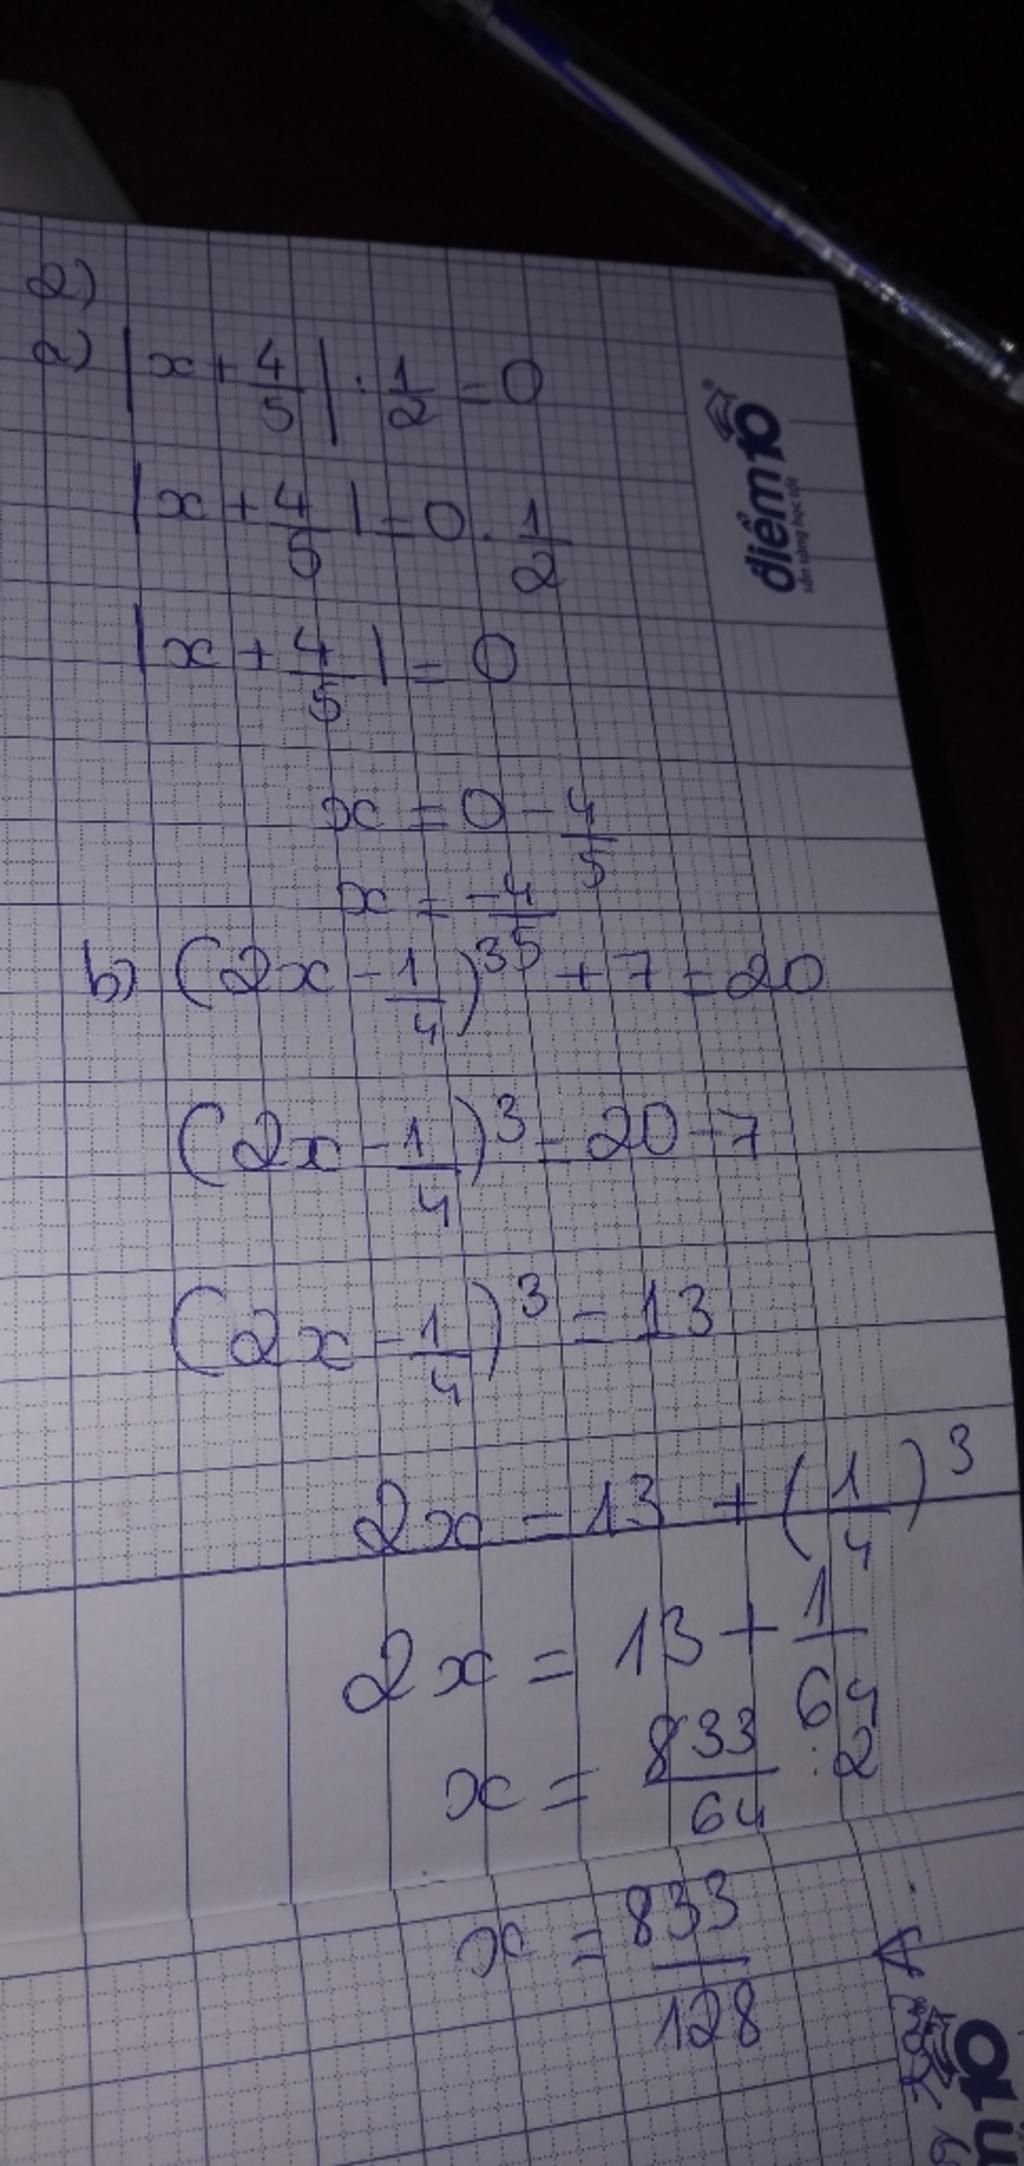 2)
a) |x + 4/5| : 1/2 = 0
|x + 4/5| = 0 . 1/2
|x + 4/5| = 0
x = 0 - 4/5
x = -4/5
b) (2x - 1/4)³ + 7 = 20
(2x - 1/4)³ = 20 - 7
(2x - 1/4)³ = 13
2x = 13 + (1/4)³
2x = 13 + 1/64
x = 833/64 : 2
x = 833/128
điểm10
sẵn sàng học tốt
m10